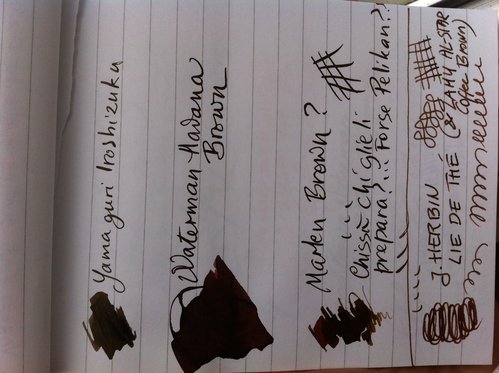 Yama guri Iroshizuku
Waterman Havana
Brown
Marlen Brown?
Chissà chi glieli
prepara?... Forse Pelikan??
J. HERBIN
LIE DE THÉ
(& LAMY ALSTAR
Coffee Brown)